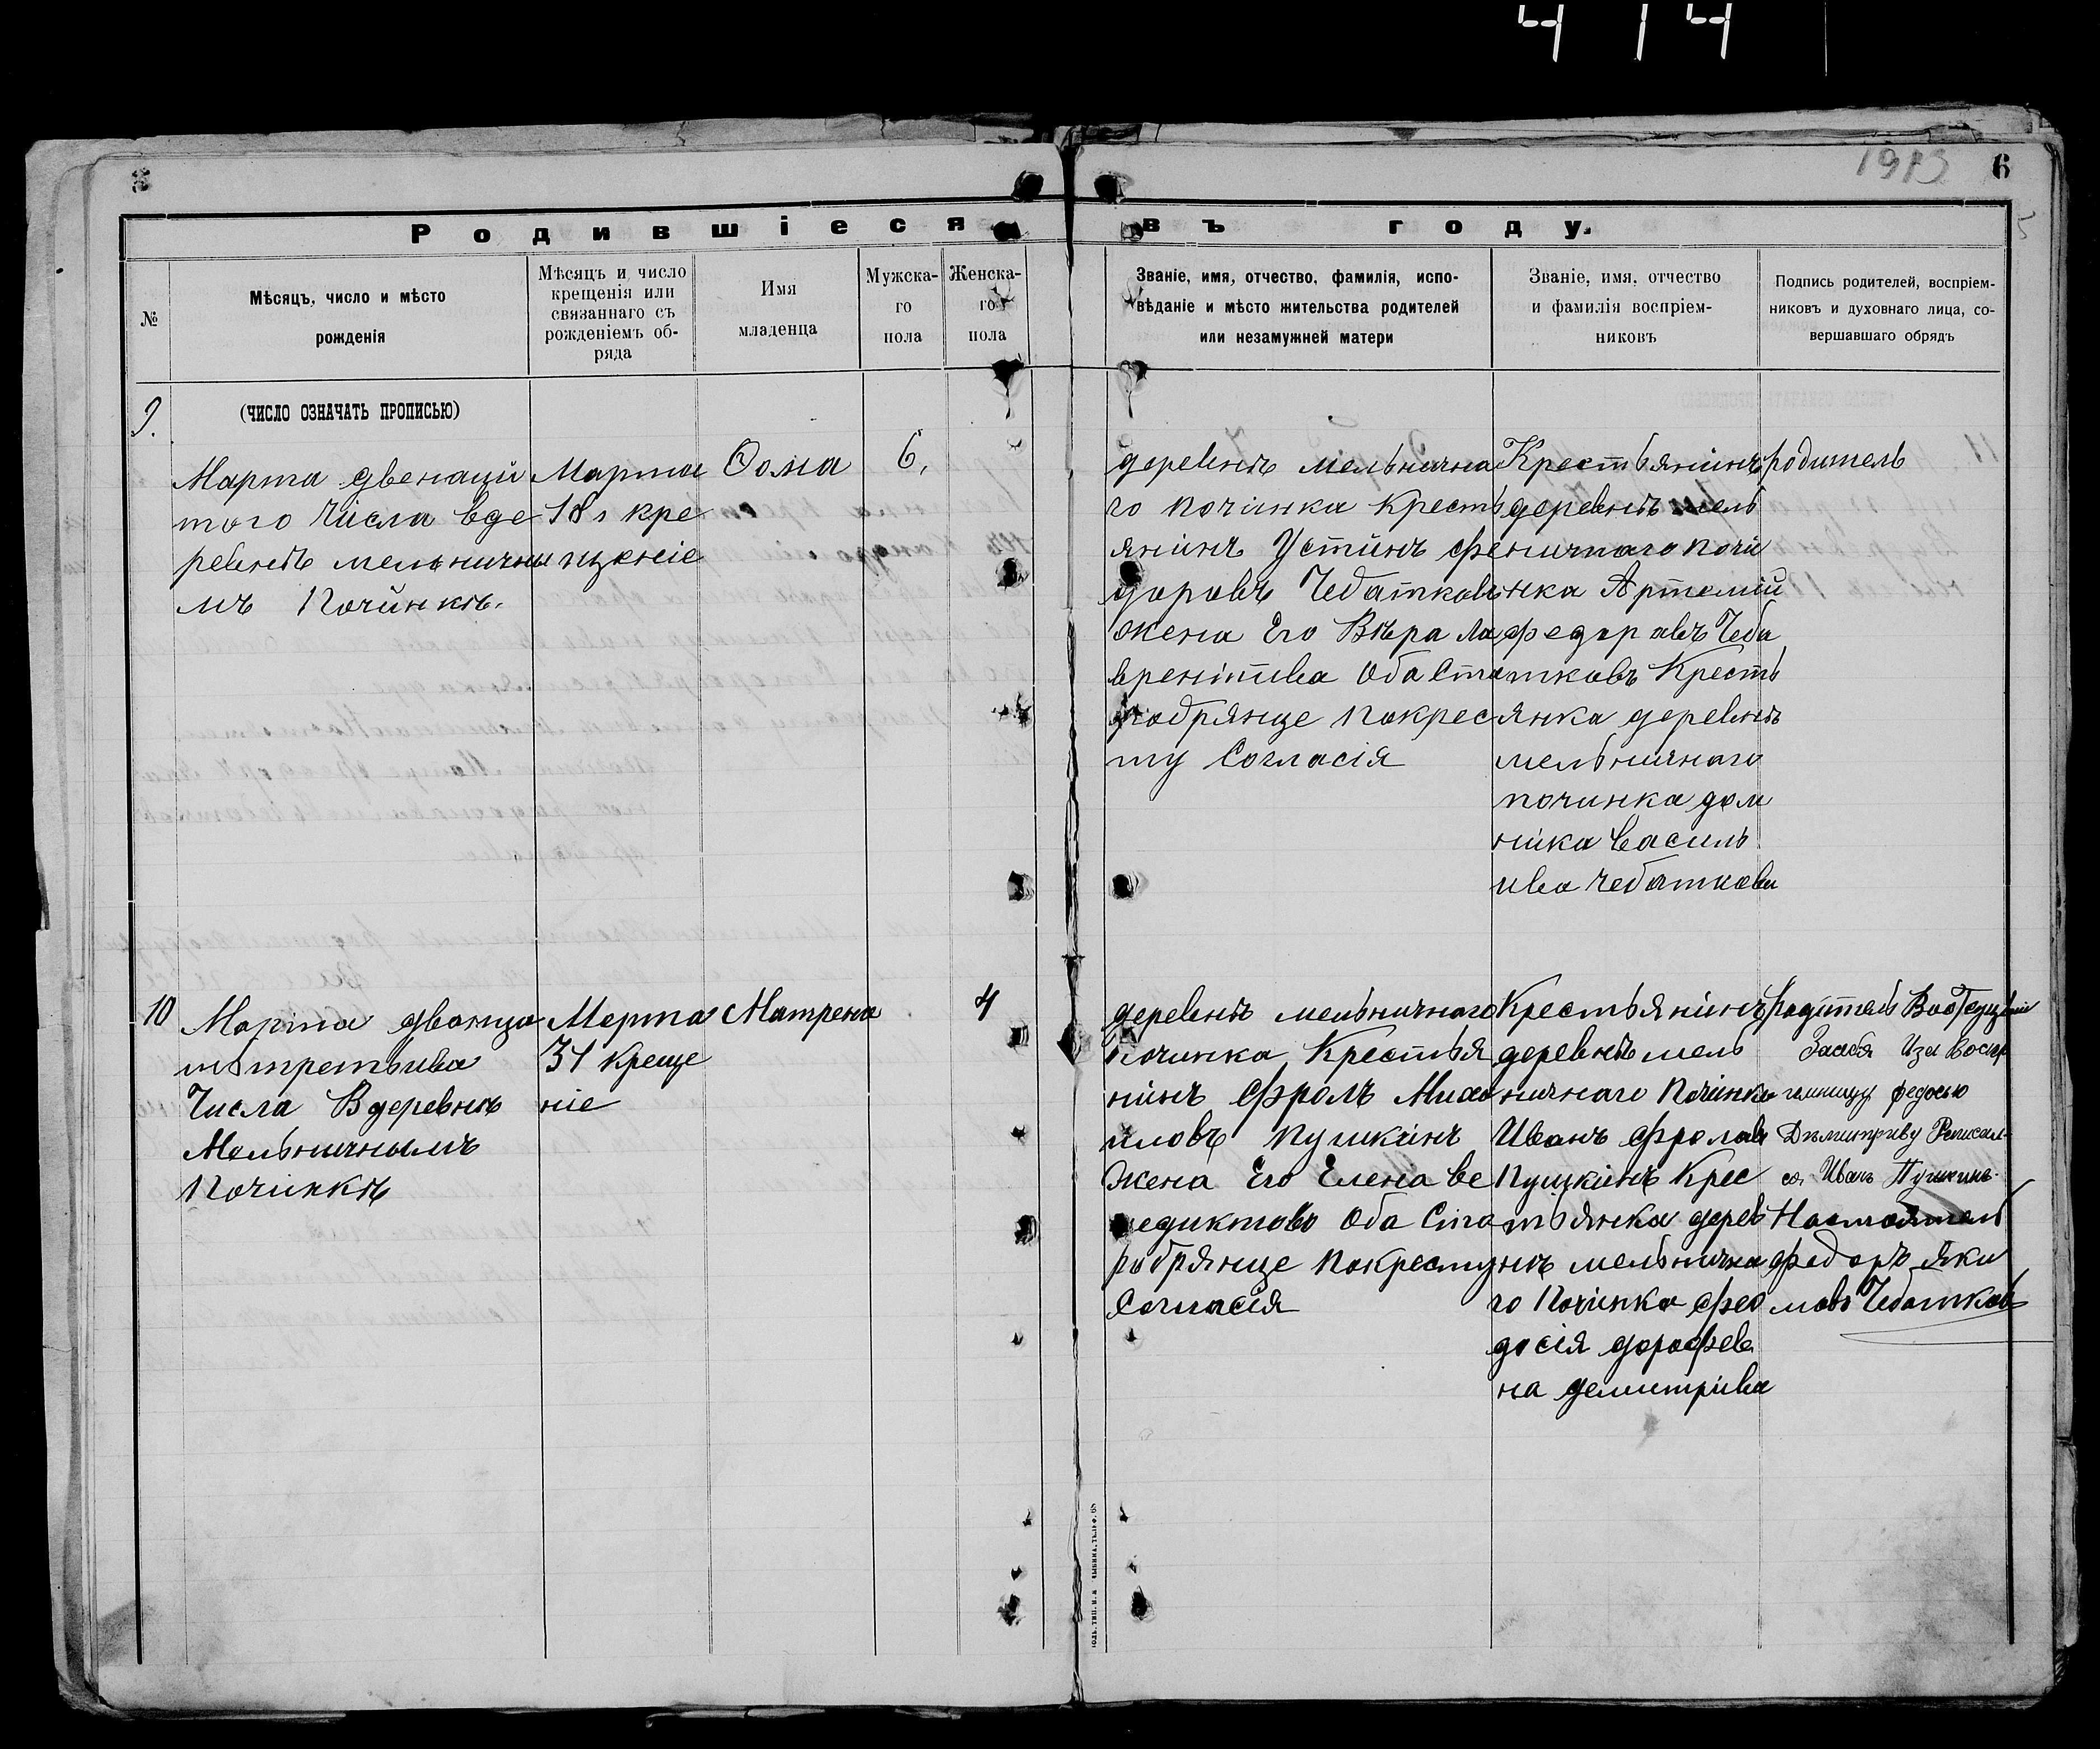 4 14
1913
6
Родившіеся въ году.
№
Мѣсяцъ, число и мѣсто
рожденія
Мѣсяцъ и число
крещенія или
связаннаго съ
рожденіемъ об-
ряда
Имя
младенца
Мужска-
го
пола
Женска-
го
пола
Званіе, имя, отчество, фамилія, испо-
вѣданіе и мѣсто жительства родителей
или незамужней матери
Званіе, имя, отчество
и фамилія воспріем-
никовъ
Подпись родителей, воспріем-
никовъ и духовнаго лица, со-
вершавшаго обрядъ
(ЧИСЛО ОЗНАЧАТЬ ПРОПИСЬЮ)
9.
Марта двенаци
того Числа вде
ревнѣ мельничны
мъ Починкѣ.
Марта
18 кре
щеніе
Ѳома
6,
деревнѣ мельнична
го починка кресть
янинъ Устинъ Фе
доровъ Чебатковъ
жена Его Вѣра Ла
врентива Оба Ста
робрянце покрес
ту Согласія
Крестьянинъ
деревнѣ мель
ничнаго почи
нка Артемій
федоравъ Чеба
тковъ Кресть
янка деревнѣ
мельничнаго
починка дом
ника Василь
ива Чебаткова
родитель
10
Марта дванца
тьтретьива
Числа Вдеревнѣ
Мельничнымъ
Починкѣ
Марта
31 Креще
ніе
Матрена
4
деревнѣ мельничнаго
починка Крестья
нинъ Фролъ Миха
иловъ Пушкинъ
Жена Его Елена Ве
недиктова Оба Ста
робрянце Покресту
Согласія
Крестьянинъ
деревнѣ мель
ничнаго Починка
Иванъ Фролавъ
Пушкинъ Крес
тьянка дерев
нѣ мельнична
го Починка Фео
досія дорофев
на демитріва
родитель
Засебя Иза Воспр
федосью
Дѣмитриву Росписал-
ся Иванъ Пушкинъ.
Настоятель
Федоръ Яки
мовъ Чебатковъ